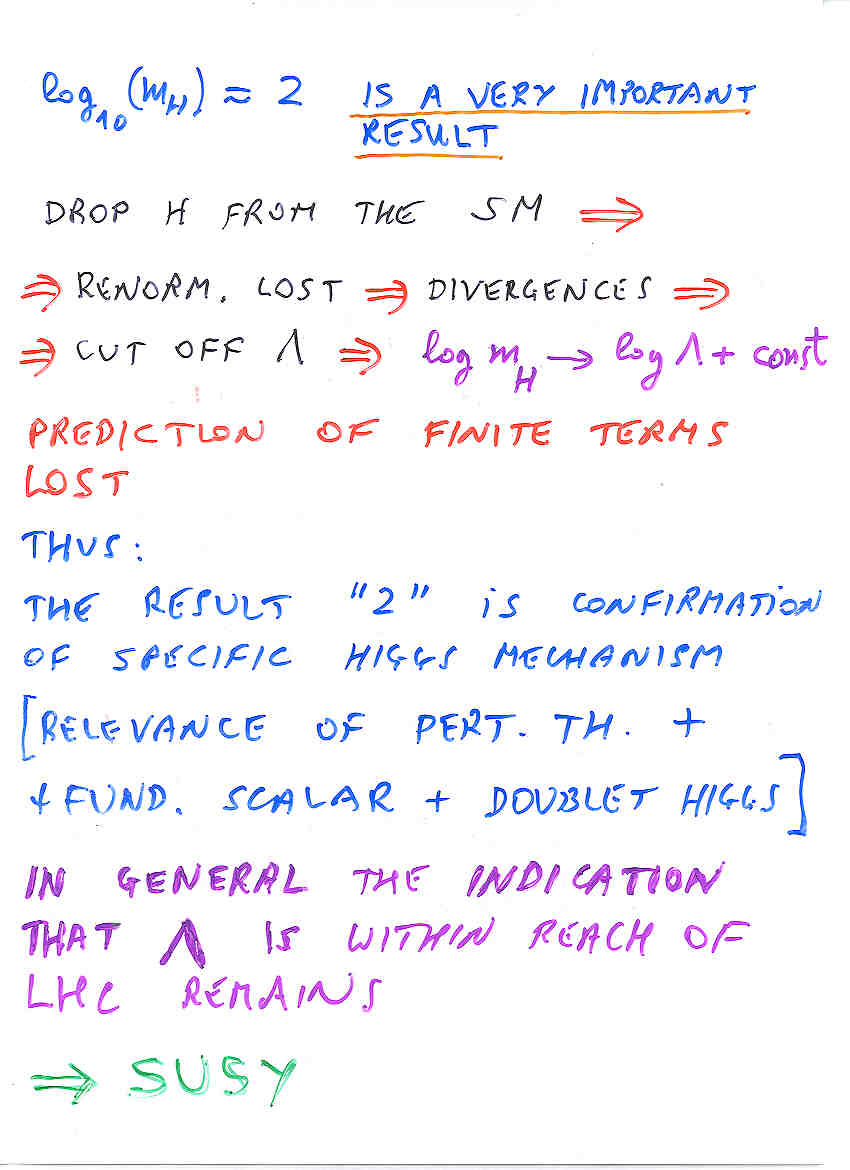 log₁₀(mH) ≈ 2 IS A VERY IMPORTANT
RESULT
DROP H FROM THE SM ⇒
⇒ RENORM. LOST ⇒ DIVERGENCES ⇒
⇒ CUT OFF Λ ⇒ log mH → log Λ + const
PREDICTION OF FINITE TERMS
LOST
THUS:
THE RESULT "2" is CONFIRMATION
OF SPECIFIC HIGGS MECHANISM
[RELEVANCE OF PERT. TH. +
+ FUND. SCALAR + DOUBLET HIGGS]
IN GENERAL THE INDICATION
THAT Λ IS WITHIN REACH OF
LHC REMAINS
⇒ SUSY